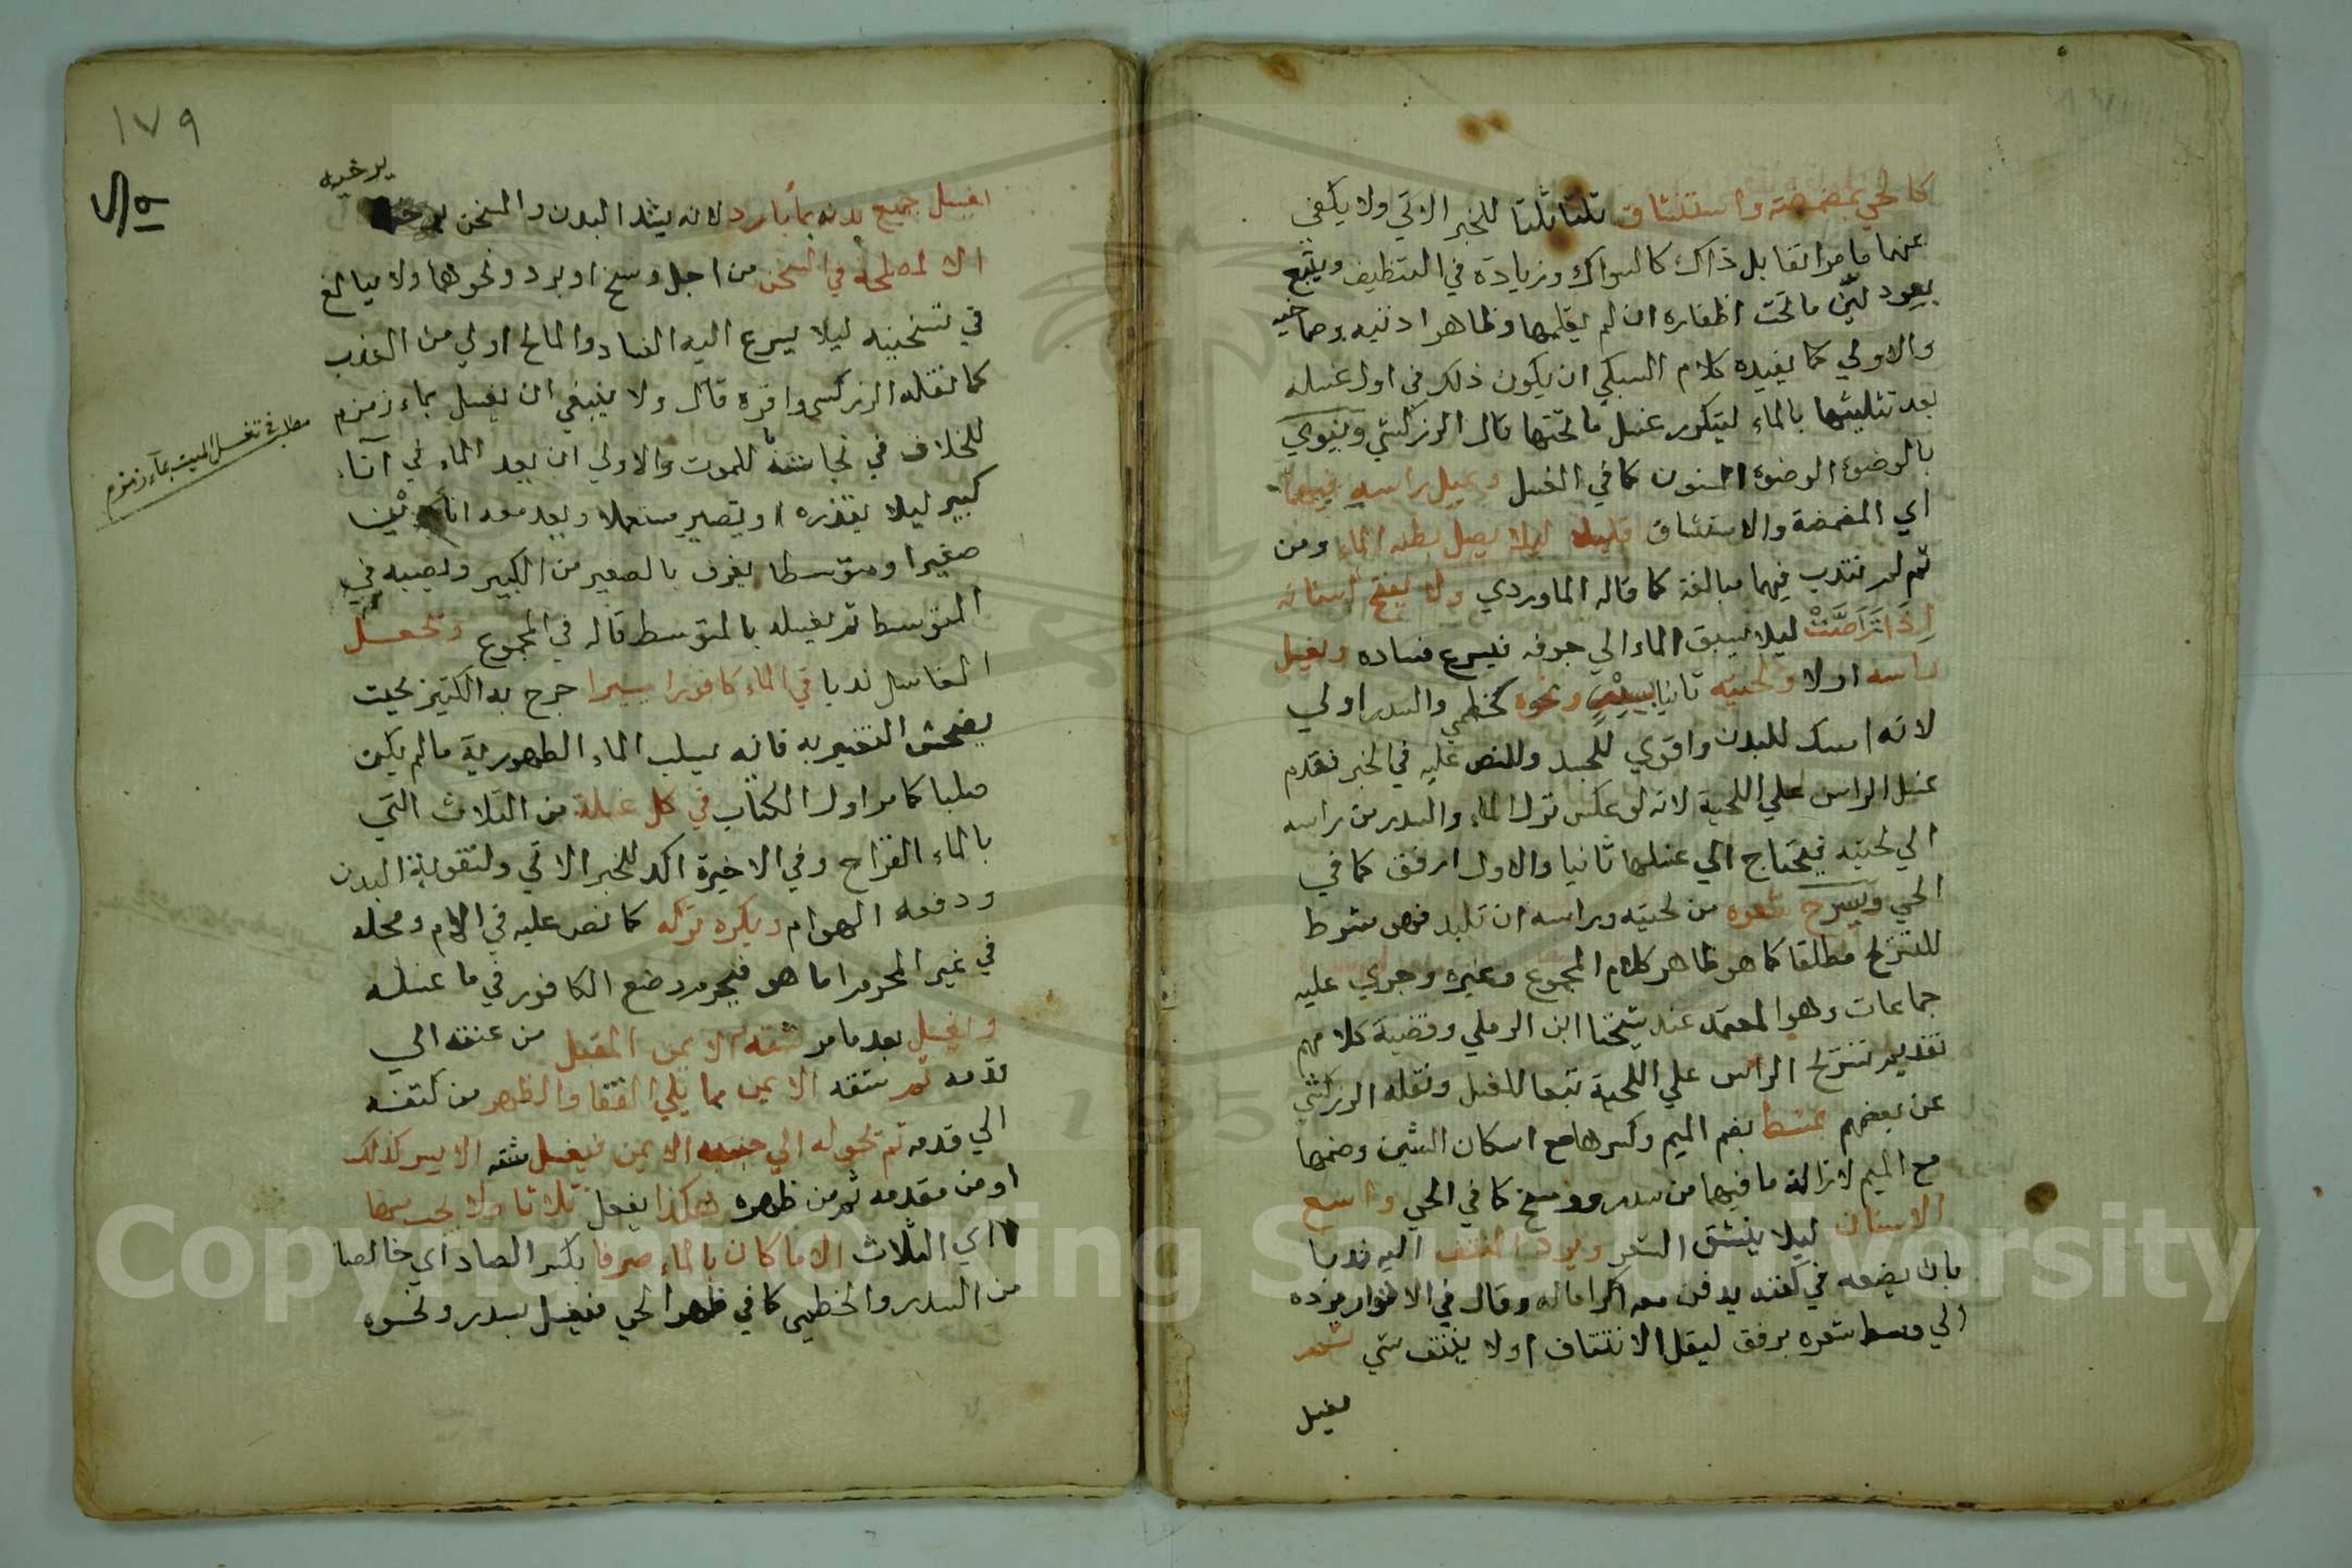 كالحي بمضمضة واستنشاق ثلثا ثلثا للخبر الاتي ولا يكفي
عنهما ما مر اتقا بل ذاك كالسواك وزيادة في التنظيف ويتبع
بعود لين ما تحت اظفاره ان لم يقلمها وظاهر اذنيه وصماخيه
والاولي كما يفيده كلام السبكي ان يكون ذلك في اول غسله
بعد تثليثها بالماء ليتكرر غسل ما تحتها قال الزركشي وينوي
بالوضوء الوضوء المسنون كما في الغسل ويميل راسه فيهما
اي المضمضة والاستنشاق قليلا ليلا يصل بطنه الماء ومن
ثم لم تندب فيهما مبالغة كما قاله الماوردي ولا يفتح اسنانه
اذا تراصت ليلا يسبق الماء الي جوفه فيسرع فساده ويغسل
راسه اولا ولحيته ثانيا بسدر ونحوه كخطمي والسدر اولي
لانه امسك للبدن واقوي للجسد وللنص عليه في الخبر فقدم
غسل الراس علي اللحية لانه لو عكس نزل الماء والسدر من راسه
الي لحيته فيحتاج الي غسلها ثانيا والاول ارفق كما في
الحي ويسرح شعره من لحيته وراسه ان تلبد فهو شرط
للتسريح مطلقا كما هو ظاهر كلام المجموع وغيره وجري عليه
جماعات وهو المعتمد عند شيخنا ابن الرملي وقضية كلامهم
تقديم تسريح الراس علي اللحية تبعا للغسل ونقله الزركشي
عن بعضهم بمشط بضم الميم وكسرها مع اسكان الشين وضمها
مع الميم لازالة ما فيهما من سدر ووسخ كما في الحي واسع
الاسنان ليلا ينتتف الشعر ويرد المنتتف اليه ندبا
بان يضعه في كفنه يدفن معه اكراما له وقال في الانوار يرده
الي وسط شعره برفق ليقل الانتتاف او لا ينتتف شي ثم
يغسل
١٧٩
يرخيه
يغسل جميع بدنه بماء بارد لانه يشد البدن والسخن يرخيه
الا لمصلحة في السخن من اجل وسخ او برد ونحوهما ولا يبالغ
في تسخينه ليلا يسرع اليه الفساد والمالح اولي من العذب
كما نقله الزركشي واقره قال ولا ينبغي ان يغسل بماء زمزم
للخلاف في نجاسته للموت والاولي ان يعد الماء في اناء
كبير ليلا يقذره او يتصيير مستعملا ويعد معه انائين
صغيرا ومتوسطا يغرف بالصغير من الكبير ويصبه في
المتوسط ثم يغسله بالمتوسط قاله في المجموع ويجعل
الغاسل ندبا في الماء كافورا يسيرا خرج به الكثير بحيث
يفحش التغير به فانه يسلب الماء الطهورية ما لم يكن
صلبا كما مر اول الكتاب في كل غسلة من الثلاث التي
بالماء القراح وفي الاخيرة اكد للخبر الاتي ولتقوية البدن
ودفعه الهوام ويكره تركه كما نص عليه في الام ومحله
في غير المحرم اما هو فيحرم وضع الكافور في ما غسله
ويغسل بعد ما مر شقه الايمن المقبل من عنقه الي
قدمه ثم شقه الايمن مما يلي القفا والظهر من كتفه
الي قدمه ثم يحوله الي جنبه الايمن فيغسل شقه الايسر كذلك
او من مقدمه ثم من ظهره هكذا يفعل ثلاثا ولا يحسب منها
اي الثلاث الا ما كان بالماء صرفا بكسر الصاد اي خالصا
من السدر والخطمي كما في طهر الحي فيغسل بسدر ونحوه
مطلب في تغسيل الميت بماء زمزم
Copyright © King Saud University